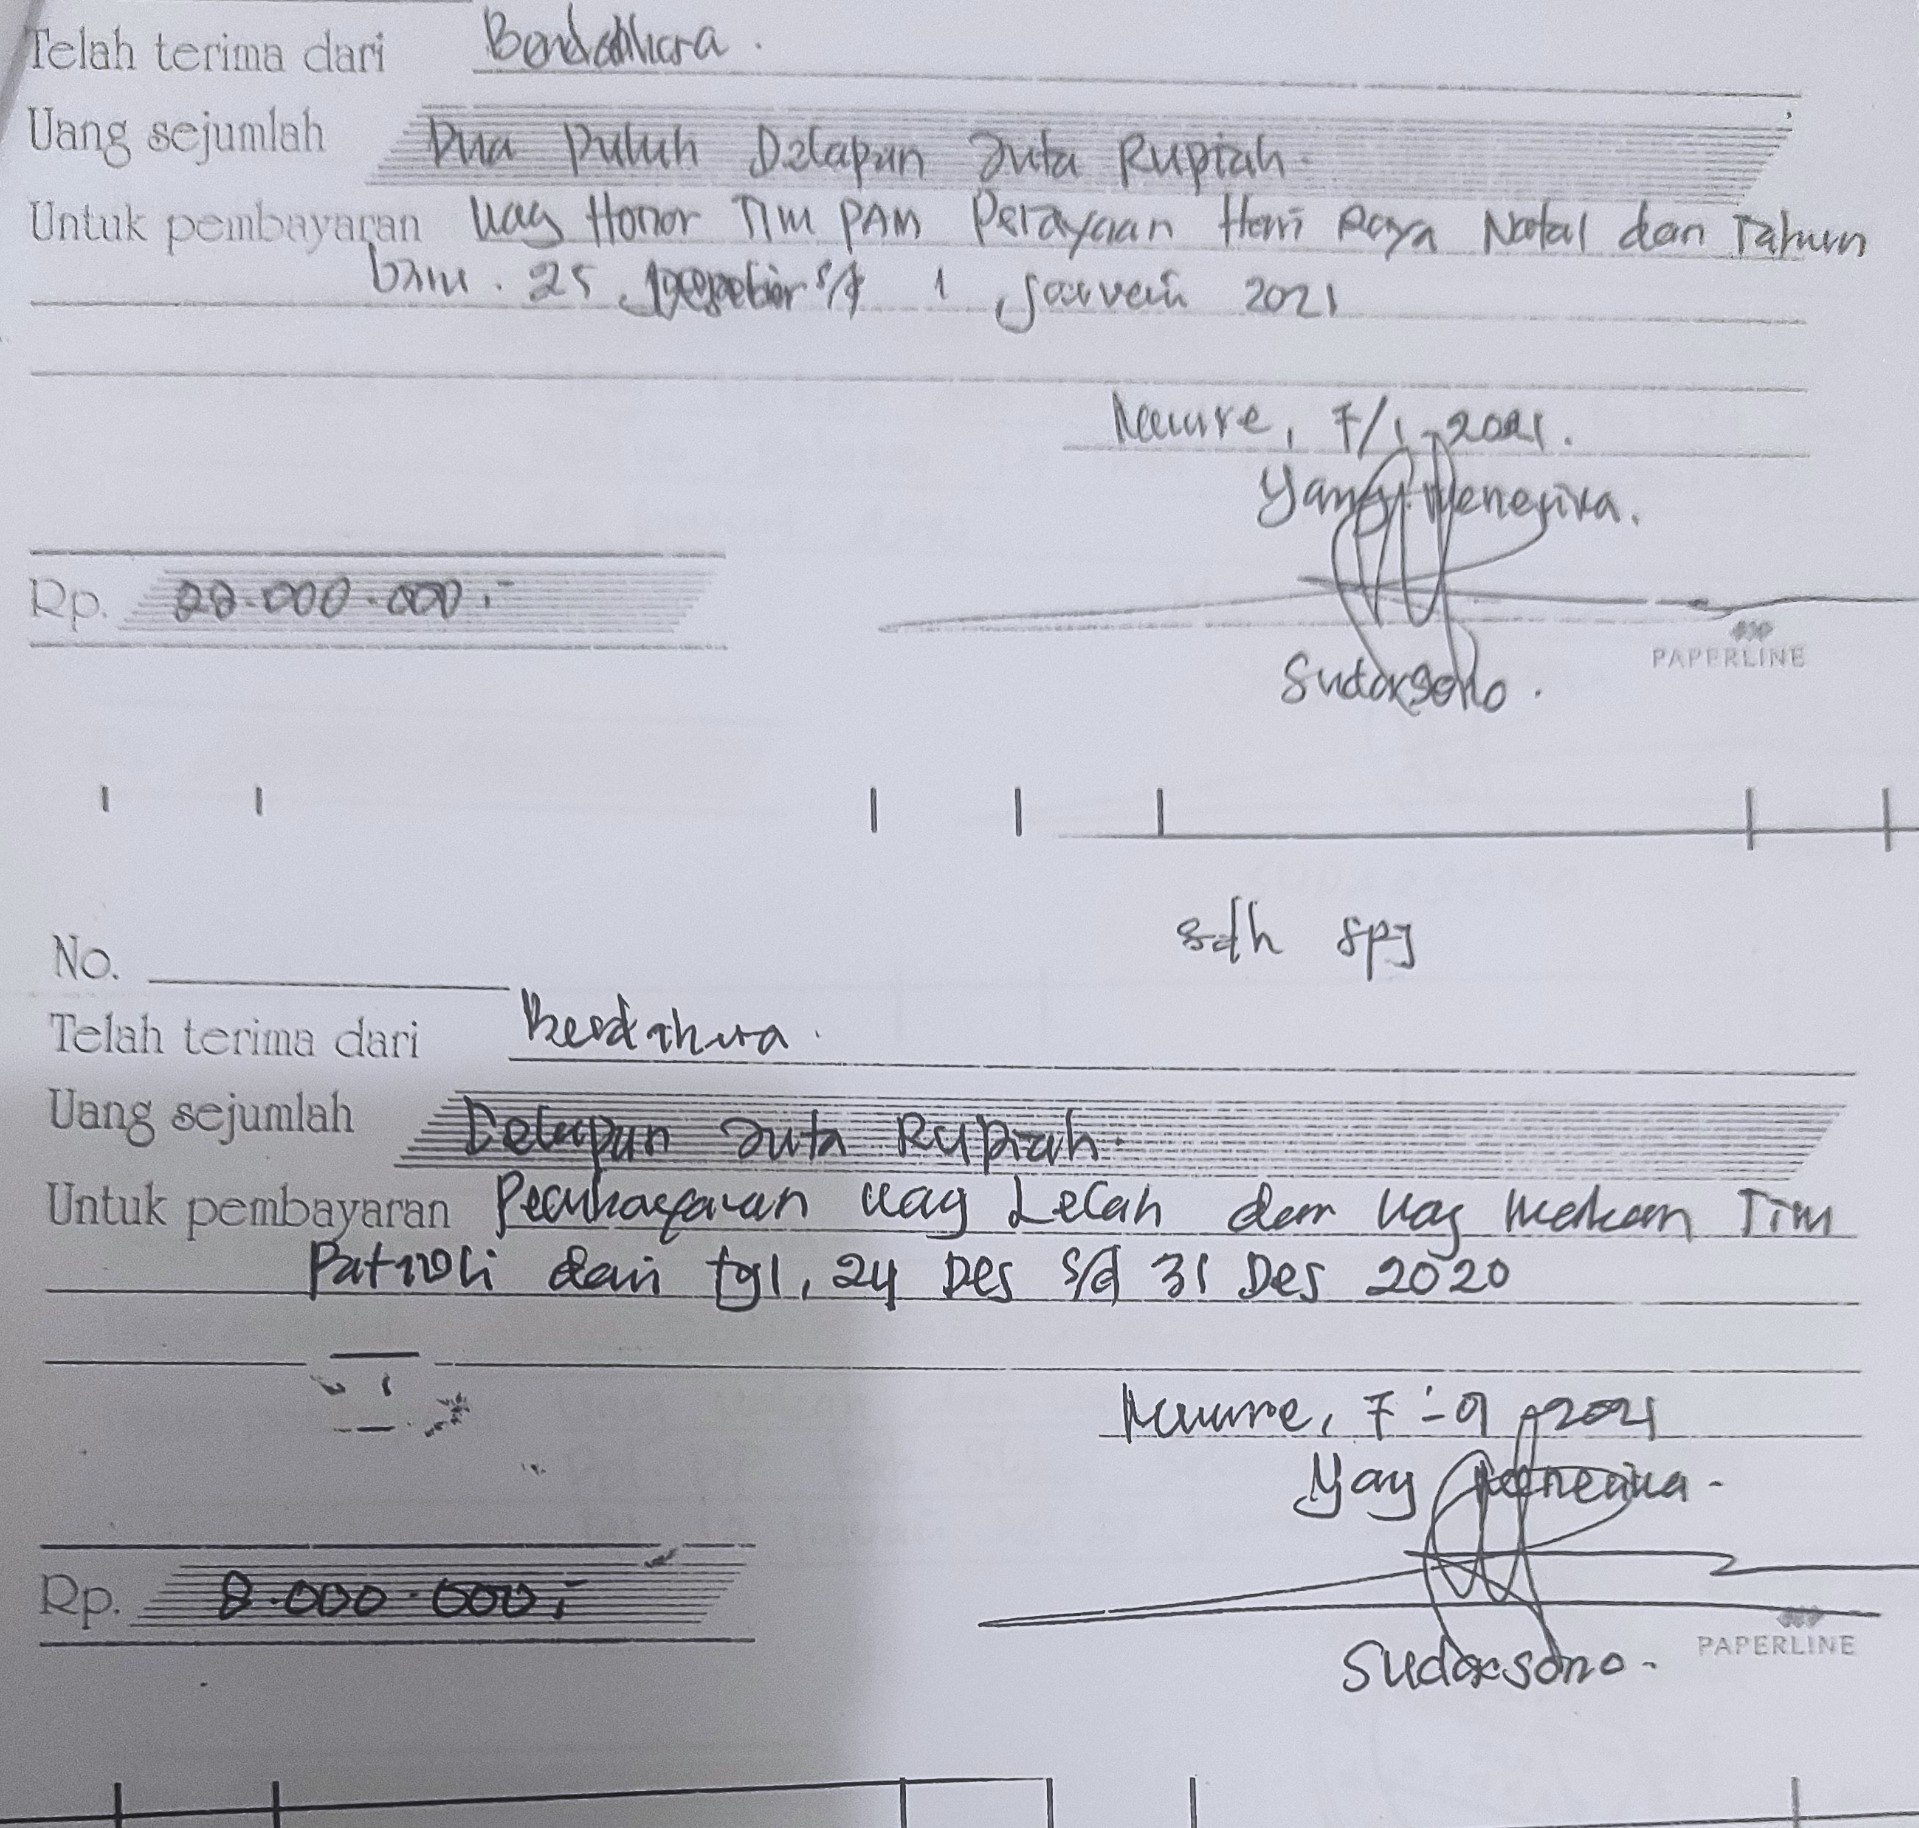 Telah terima dari Bendahara.
Uang sejumlah Dua Puluh Delapan Juta Rupiah.
Untuk pembayaran Uag Honor Tim PAM Perayaan Hari Raya Natal dan Tahun
baru. 25 Desember s/d 1 Januari 2021
7/1-2021.
Yang Menerima.
Rp. 28.000.000.-
PAPERLINE
Sudarsono.
sdh spj
No.
Telah terima dari Bendahara.
Uang sejumlah Delapan Juta Rupiah.
Untuk pembayaran Uag Lelah dan Uag Makan Tim
Patroli dari tgl, 24 Des s/d 31 Des 2020
2021
Yag Menerima.
Rp. 8.000.000,-
PAPERLINE
Sudarsono.